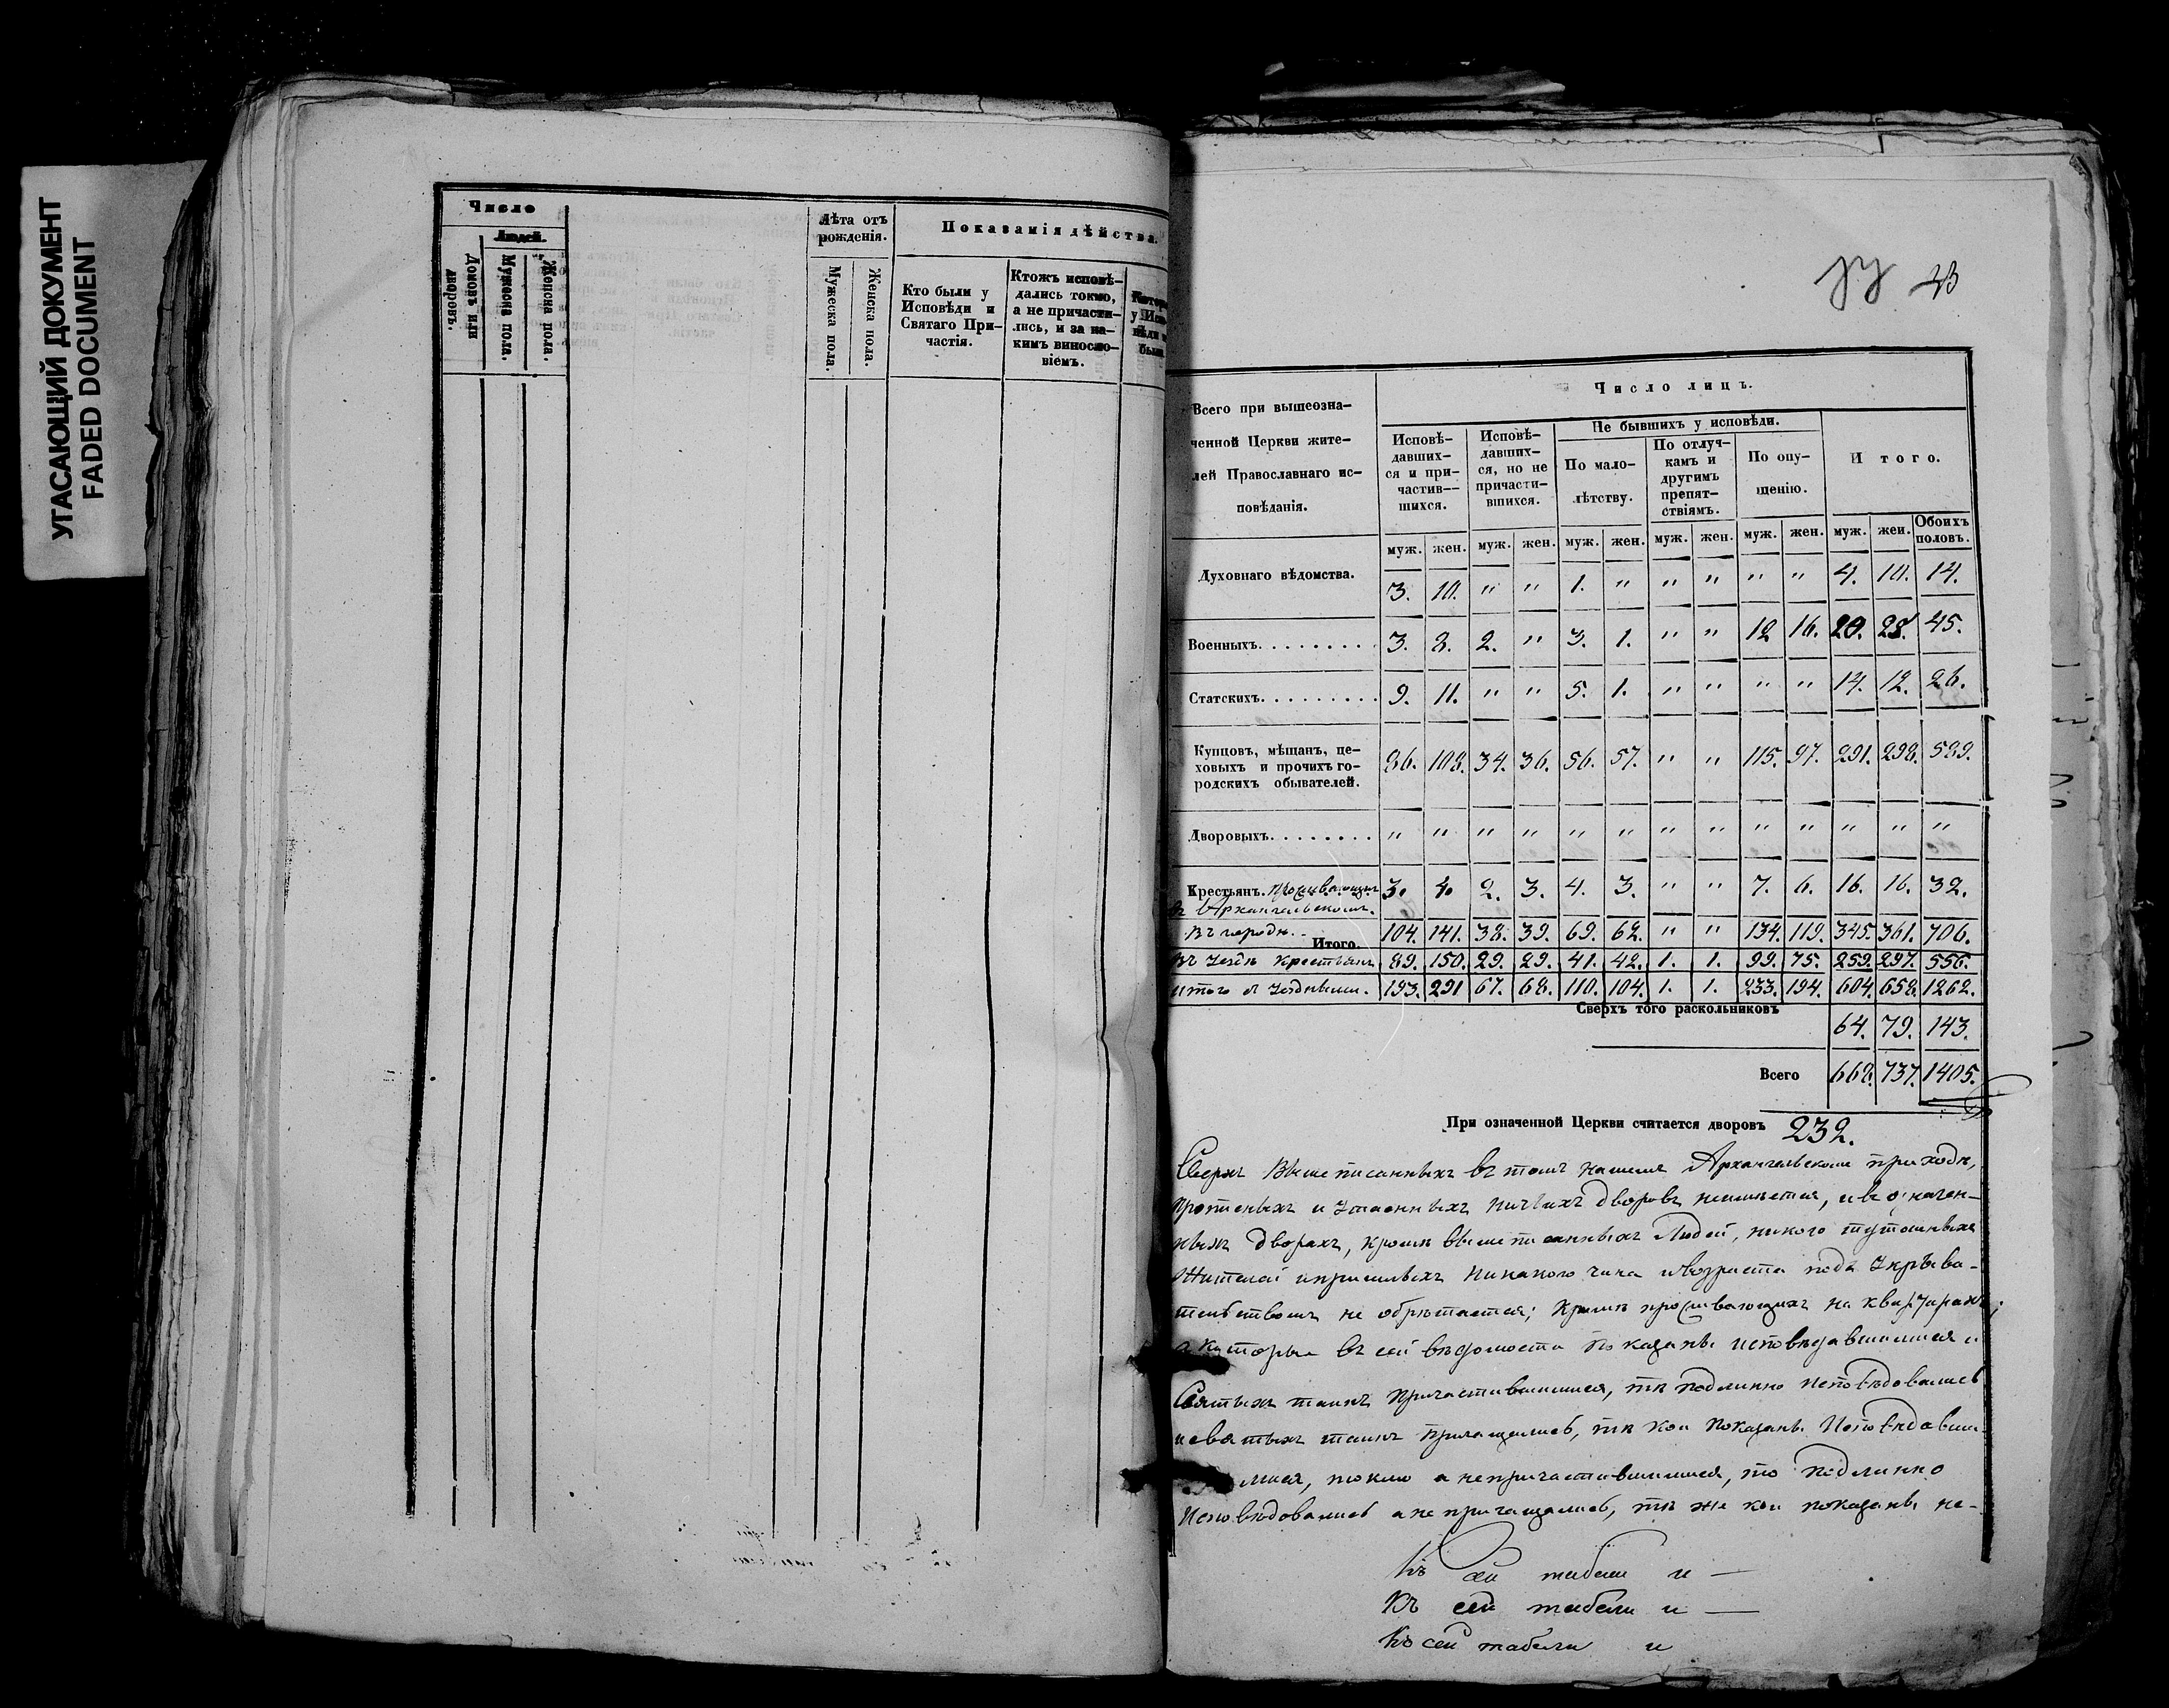 УГАСАЮЩИЙ ДОКУМЕНТ
FADED DOCUMENT
Число
Людей.
Домовъ или дворовъ.
Мужеска пола.
Женска пола.
Лѣта отъ рожденія.
Мужеска пола.
Женска пола.
Показанія дѣйства.
Кто были у
Исповѣди и
Святаго При-
частія.
Ктожъ исповѣ-
дались токмо,
а не причасти-
лись, и за ка-
кимъ винosло-
віемъ.
Всего при вышеозна-
ченной Церкви жите-
лей Православнаго ис-
повѣданія.
Число лицъ.
Исповѣ-
давших-
ся и при-
частив-
шихся.
Исповѣ-
давших-
ся, но не
причасти-
вшихся.
Не бывшихъ у исповѣди.
По мало-
лѣтству.
По отлуч-
камъ и
другимъ
препят-
ствіямъ.
По опу-
щенію.
Итого.
муж. жен. муж. жен. муж. жен. муж. жен. муж. жен. муж. жен. Обоихъ половъ.
Духовнаго вѣдомства. 3. 10. " " 1. " " " " " 4. 10. 14.
Военныхъ. . . . . . . . 3. 8. 2. " 3. 1. " " 12 16. 20. 25. 45.
Статскихъ. . . . . . . . . 9. 11. " " 5. 1. " " " " 14. 12. 26.
Купцовъ, мѣщанъ, це-
ховыхъ и прочихъ го-
родскихъ обывателей.
86. 108. 34. 36. 56. 57. " " 115. 97. 291. 298. 589.
Дворовыхъ. . . . . . . . " " " " " " " " " " " " "
Крестьянъ. проживающихъ 3. 4. 2. 3. 4. 3. " " 7. 6. 16. 16. 32.
въ Архангельскомъ.
въ городѣ. Итого. 104. 141. 38. 39. 69. 62. " " 134. 119. 345. 361. 706.
въ уездѣ крестьянъ 89. 150. 29. 29. 41. 42. 1. 1. 99. 75. 259. 297. 556.
итого с уезднымъ. 193. 291 67. 68. 110. 104. 1. 1. 233. 194. 604. 658. 1262.
Сверхъ того раскольниковъ 64. 79. 143.
Всего 668. 737. 1405.
При означенной Церкви считается дворовъ 232.
Сверхъ вышеписанныхъ въ томъ нашемъ Архангельскомъ приходѣ,
и утаенныхъ ничьихъ дворовъ неимѣется, и въ означен-
ныхъ дворахъ, кромѣ вышеписанныхъ людей, никого тутошныхъ
жителей и пришлыхъ никакого чина и возраста подъ укрыва-
тельствомъ не обрѣтается; кромѣ проживающихъ на квартирахъ;
а которые въ сей вѣдомости показаны исповѣдавшимися и
Святыхъ таинъ причастившимися, тѣ подлинно исповѣдовались
и святыхъ таинъ причащались, тѣ кои показаны исповѣдавши-
мися, токмо а непричастившимися, то подлинно
исповѣдовались а не причащались, тѣ же кои показаны не-
Къ сей табели и —
Къ сей табели и —
Къ сей табели и